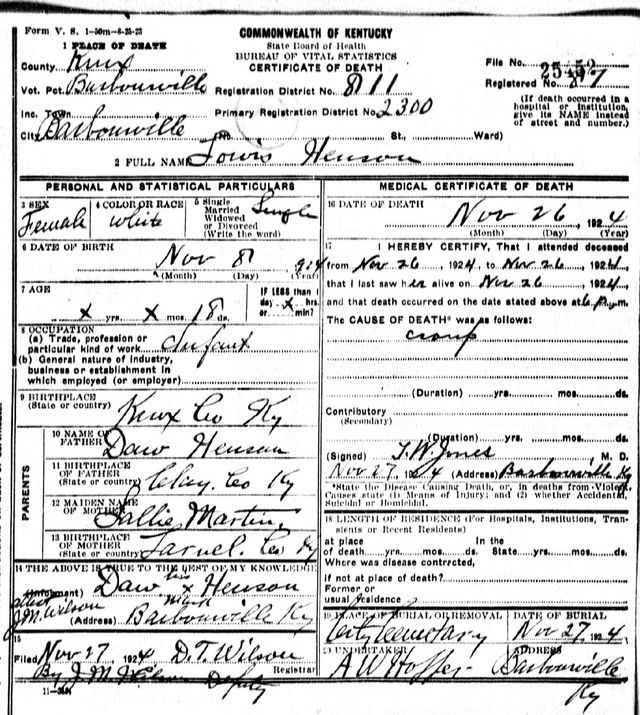 Form V. S. 1-50m-8-25-23
COMMONWEALTH OF KENTUCKY
State Board of Health
BUREAU OF VITAL STATISTICS
CERTIFICATE OF DEATH
1 PLACE OF DEATH
County Knox
Vot. Pct. Barbourville
Inc. Town
City Barbourville
File No.
Registered No.
Registration District No. 811
Primary Registration District No. 2300
(If death occurred in a hospital or institution, give its NAME instead of street and number.)
(No St., Ward)
2 FULL NAME Lowis Henson
PERSONAL AND STATISTICAL PARTICULARS
3 SEX Female
4 COLOR OR RACE white
5 Single Married Widowed or Divorced (Write the word) Single
6 DATE OF BIRTH Nov 8 924
(Month) (Day) (Year)
7 AGE x yrs. x mos. 18 ds.
IF LESS than 1 day x hrs. or min?
8 OCCUPATION
(a) Trade, profession or particular kind of work Infant
(b) General nature of industry, business or establishment in which employed (or employer)
9 BIRTHPLACE
(State or country) Knox Co Ky
PARENTS
10 NAME OF FATHER Daw Henson
11 BIRTHPLACE OF FATHER
(State or country) Clay. Co Ky
12 MAIDEN NAME OF MOTHER Sallie Martin
13 BIRTHPLACE OF MOTHER
(State or country) Co Ky
14 THE ABOVE IS TRUE TO THE BEST OF MY KNOWLEDGE
(Informant) Daw his x mark Henson
J.M. Wilson
(Address) Barbourville Ky
15
Filed Nov 27, 1924 D.T. Wilson
Registrar
By J. M. Wilson Deputy
MEDICAL CERTIFICATE OF DEATH
16 DATE OF DEATH
Nov 26, 1924
(Month) (Day) (Year)
17 I HEREBY CERTIFY, That I attended deceased
from Nov 26, 1924, to Nov 26, 1924,
that I last saw her alive on Nov 26, 1924,
and that death occurred on the date stated above at 6 P.m.
The CAUSE OF DEATH* was as follows:
croup
(Duration) yrs. mos. ds.
Contributory
(Secondary)
(Duration) yrs. mos. ds.
(Signed) T. W. Jones M. D.
Nov 27, 1924 (Address) Barbourville Ky
*State the Disease Causing Death, or, in deaths from Violent Causes state (1) Means of Injury; and (2) whether Accidental, Suicidal or Homicidal.
18 LENGTH OF RESIDENCE (For Hospitals, Institutions, Transients or Recent Residents)
at place of death yrs. mos. ds. In the State yrs. mos. ds.
Where was disease contracted,
if not at place of death?
Former or usual residence
19 PLACE OF BURIAL OR REMOVAL City Cemetary
DATE OF BURIAL Nov 27, 1924
20 UNDERTAKER A W Hoffer
ADDRESS Barbourville Ky